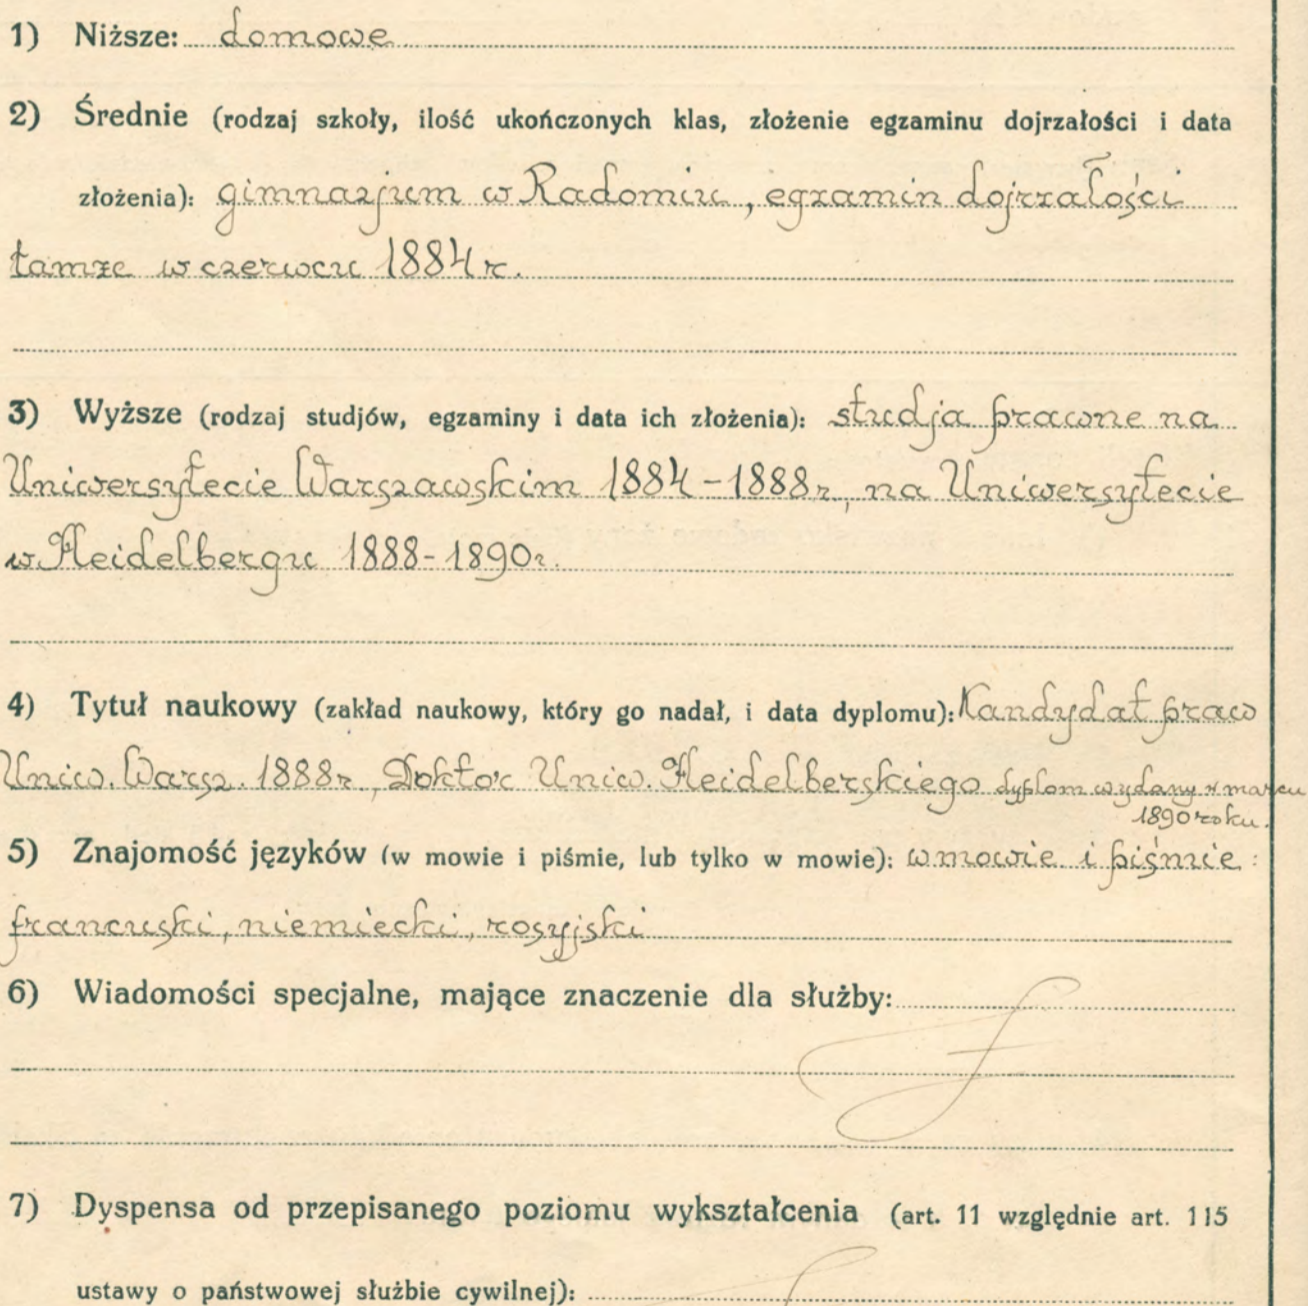 1) Niższe: domowe
2) Średnie (rodzaj szkoły, ilość ukończonych klas, złożenie egzaminu dojrzałości i data
złożenia): gimnazjum w Radomiu, egzamin dojrzałości
tamże w czerwcu 1884 r.
3) Wyższe (rodzaj studjów, egzaminy i data ich złożenia): studja prawne na
Uniwersytecie Warszawskim 1884-1888 r, na Uniwersytecie
w Heidelbergu 1888-1890 r.
4) Tytuł naukowy (zakład naukowy, który go nadał, i data dyplomu): Kandydat praw
Uniw. Warsz. 1888 r, Doktor Uniw. Heidelberskiego dyplom wydany w marcu
1890 roku.
5) Znajomość języków (w mowie i piśmie, lub tylko w mowie): w mowie i piśmie :
francuski, niemiecki, rosyjski
6) Wiadomości specjalne, mające znaczenie dla służby:
7) Dyspensa od przepisanego poziomu wykształcenia (art. 11 względnie art. 115
ustawy o państwowej służbie cywilnej):